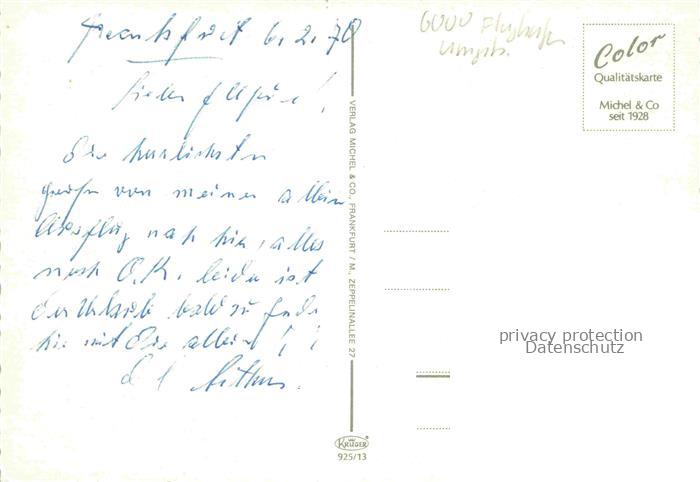 Frankfurt 6.2.70
Lieber
Die herzlichsten
Grüße von meinem allein
Ausflug nach hier, alles
noch O.K. leider ist
der Urlaub bald zu Ende
bis mit Die allein !!
Arthur.
6000 Flughafen
Umgeb.
Color
Qualitätskarte
Michel & Co
seit 1928
VERLAG MICHEL & CO., FRANKFURT / M., ZEPPELINALLEE 27
privacy protection
Datenschutz
KRÜGER
925/13